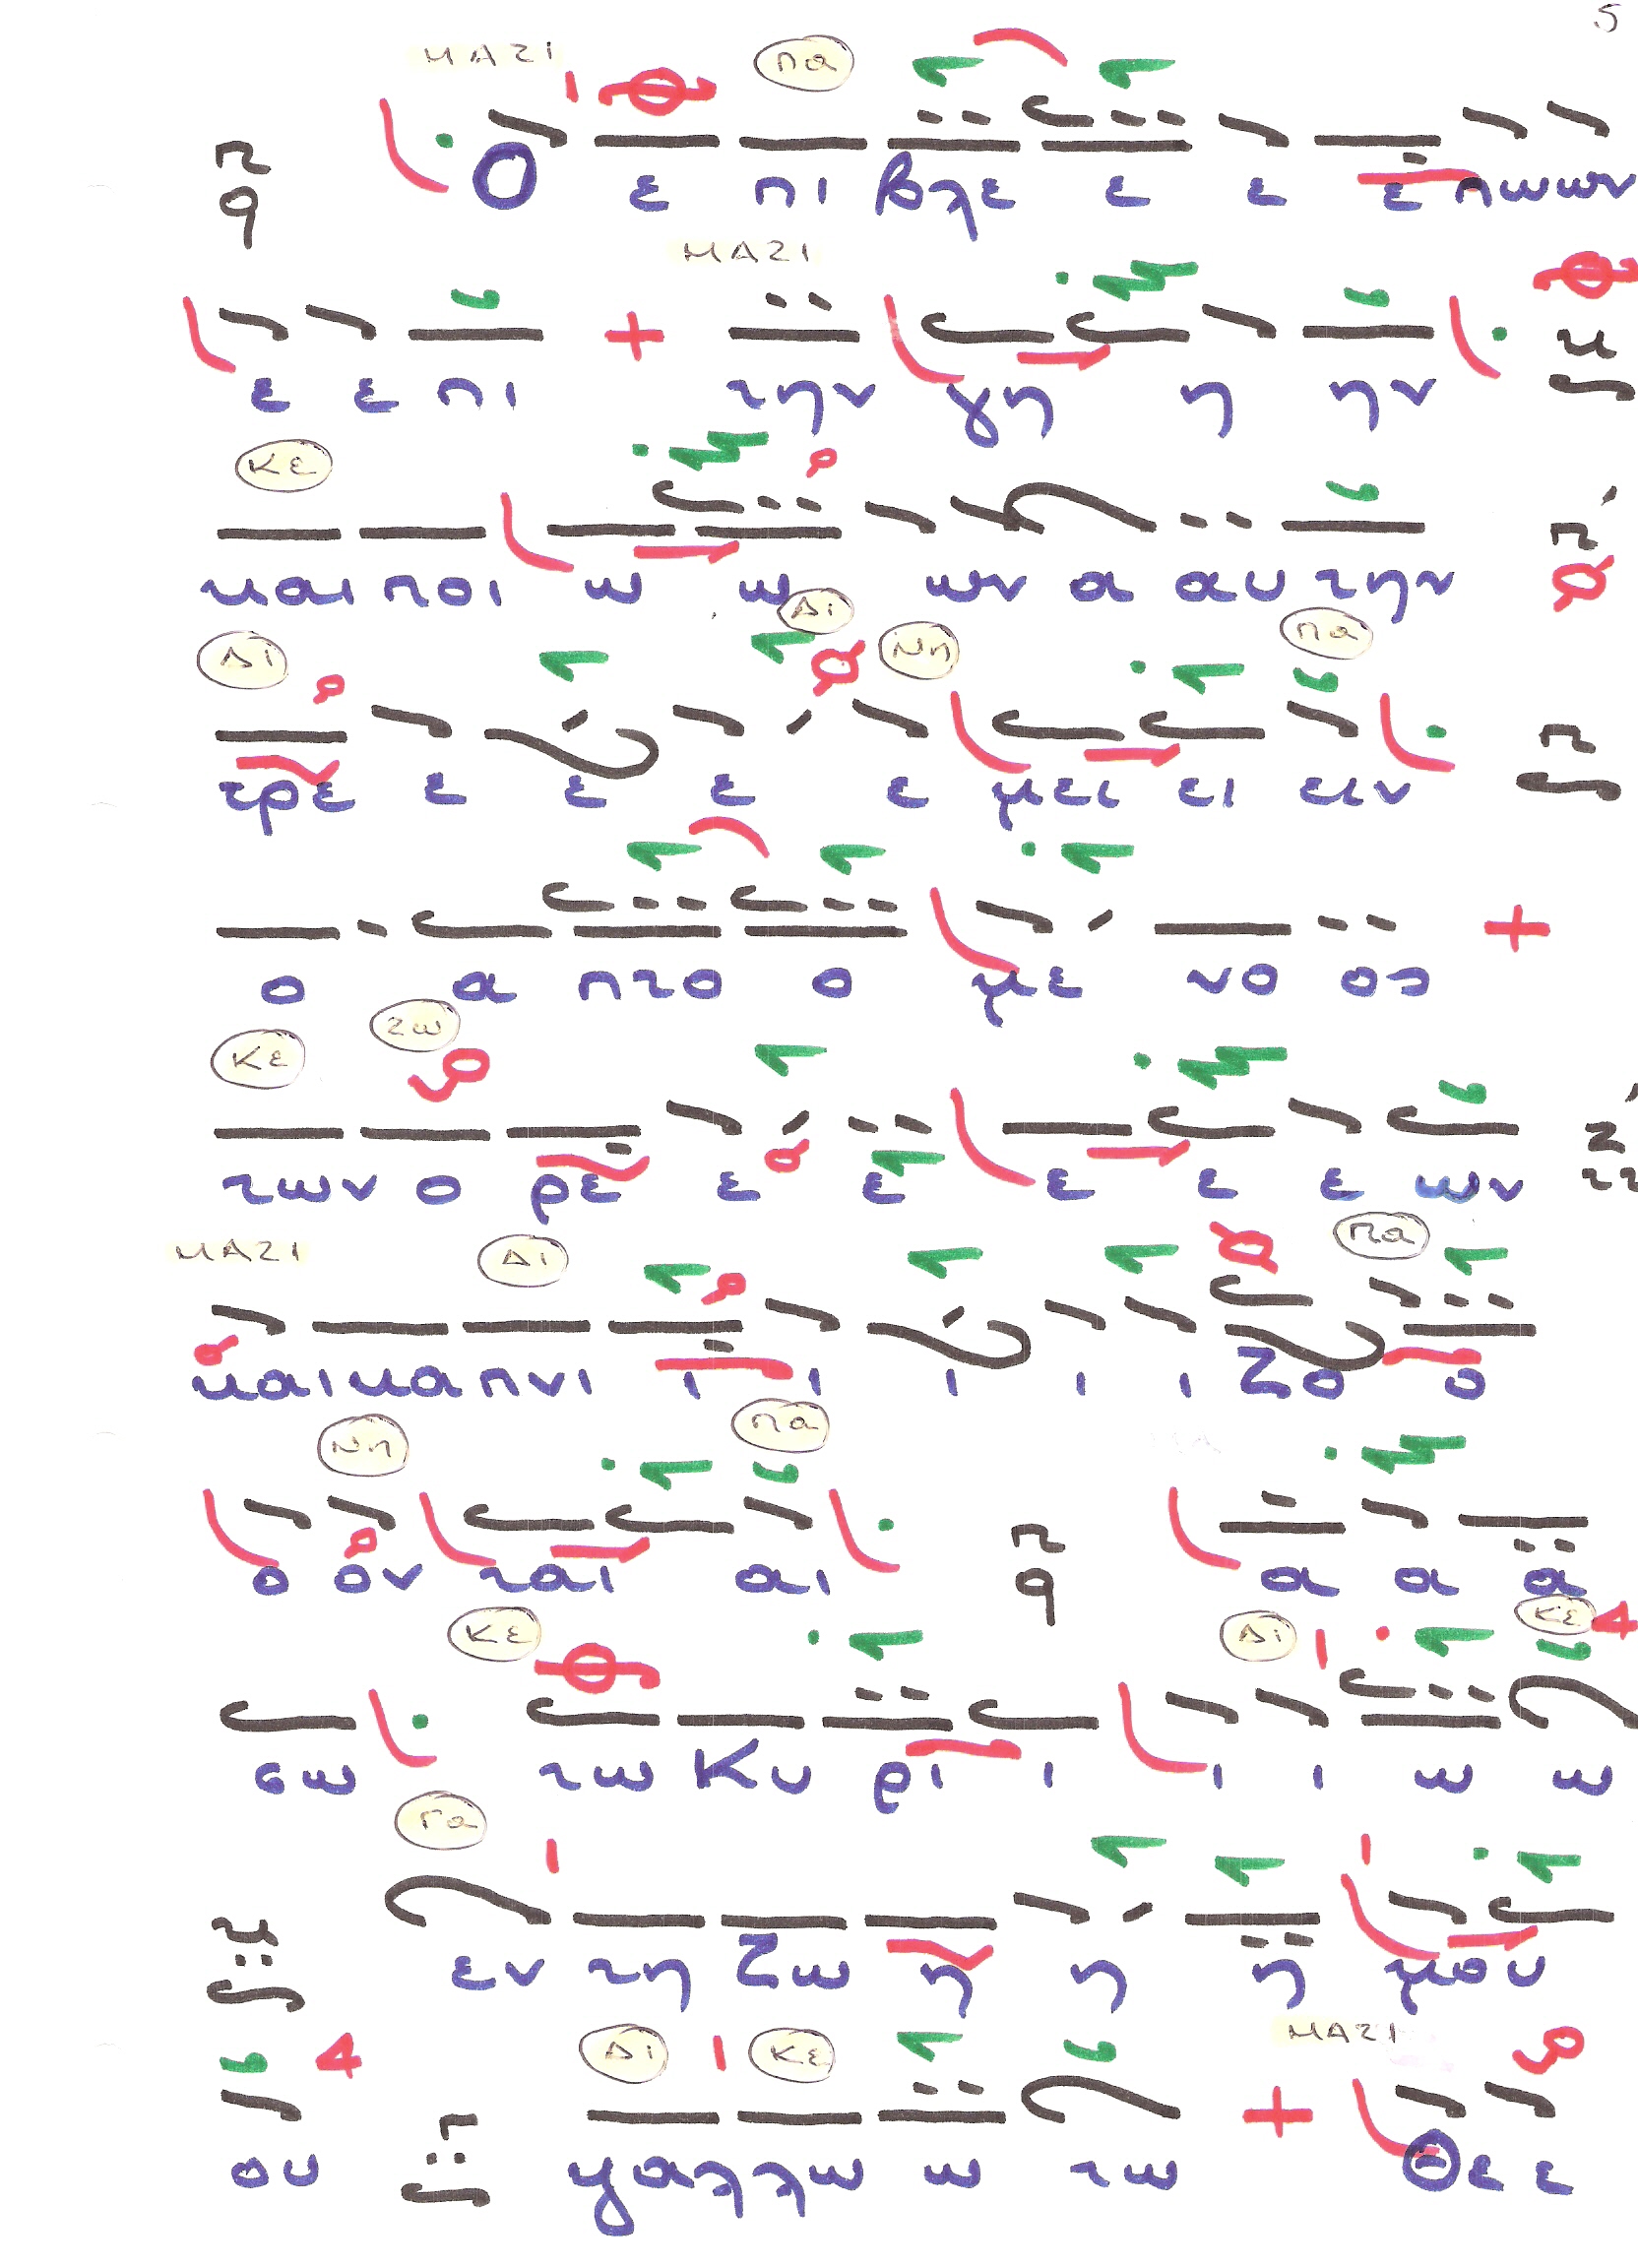 5
ΜΑΖΙ πα
Ο ε πι βλε ε ε ε πωων
ΜΑΖΙ
ε ε πι την γη η ην
Κε
και ποι ω ω ων α αυ την
Δι Δι Νη πα
τρε ε ε ε ε μει ει ειν
ο α πτο ο με νο ος
Κε Ζω
των ο ρε ε ε ε ε ε ων
ΜΑΖΙ Δι πα
και κα πνι ι ι ι ι ι ζο ο
Νη πα
ο ον ται αι α α α
Κε Δι Κε
σω τω Κυ ρι ι ι ι ω ω
Γα
εν τη ζω η η η μου
Δι Κε ΜΑΖΙ
ου ψαλλω ω τω Θε ε